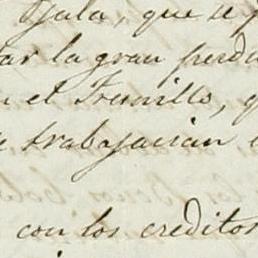 Ojala, que se p
ar la gran perdi
n el Fresnillo, q
e trabajarian e
con los creditos